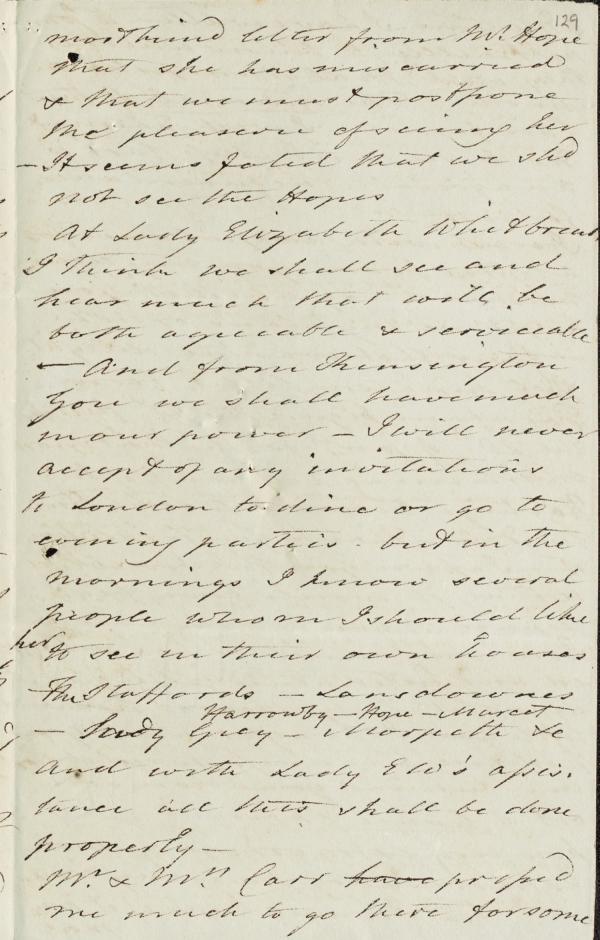 129
most kind letter from Mrs. Hope
that she has miscarried
& that we must postpone
the pleasure of seeing her
– It seems fated that we shd
not see the Hopes
At Lady Elizabeth Whitbreads
I think we shall see and
hear much that will be
both agreeable & serviceable
– And from Kensington
Gore we shall have much
in our power – I will never
accept of any invitations
to London to dine or go to
evening parties. but in the
mornings I know several
people whom I should like
to see in their own houses
The Staffords – Lansdownes
Harrowby – Hope – Marcet
– Lady Grey – Morpeth &c
And with Lady Eliz's assis.
tance all this shall be done
properly –
Mr. & Mrs. Carr have pressed
me much to go there for some